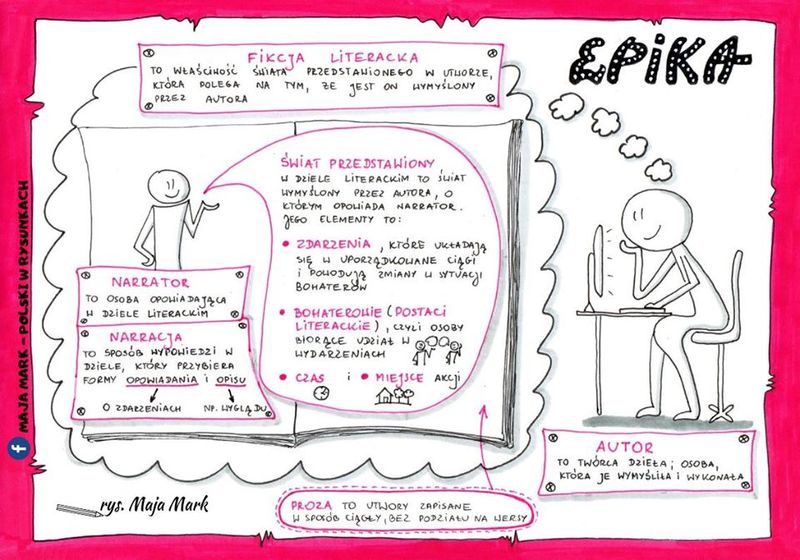 EPIKA
FIKCJA LITERACKA
TO WŁAŚCIWOŚĆ ŚWIATA PRZEDSTAWIONEGO W UTWORZE,
KTÓRA POLEGA NA TYM, ŻE JEST ON WYMYŚLONY
PRZEZ AUTORA
ŚWIAT PRZEDSTAWIONY
W DZIELE LITERACKIM TO ŚWIAT
WYMYŚLONY PRZEZ AUTORA, O
KTÓRYM OPOWIADA NARRATOR.
JEGO ELEMENTY TO:
• ZDARZENIA, KTÓRE UKŁADAJĄ
SIĘ W UPORZĄDKOWANE CIĄGI
I POWODUJĄ ZMIANY W SYTUACJI
BOHATERÓW
• BOHATEROWIE (POSTACI
LITERACKIE), CZYLI OSOBY
BIORĄCE UDZIAŁ W
WYDARZENIACH
• CZAS I • MIEJSCE AKCJI
NARRATOR
TO OSOBA OPOWIADAJĄCA
W DZIELE LITERACKIM
NARRACJA
TO SPOSÓB WYPOWIEDZI W
DZIELE, KTÓRY PRZYBIERA
FORMY OPOWIADANIA I OPISU
O ZDARZENIACH NP. WYGLĄDU
AUTOR
TO TWÓRCA DZIEŁA; OSOBA,
KTÓRA JE WYMYŚLIŁA I WYKONAŁA
PROZA TO UTWORY ZAPISANE
W SPOSÓB CIĄGŁY, BEZ PODZIAŁU NA WERSY
rys. Maja Mark
f MAJA MARK - POLSKI W RYSUNKACH